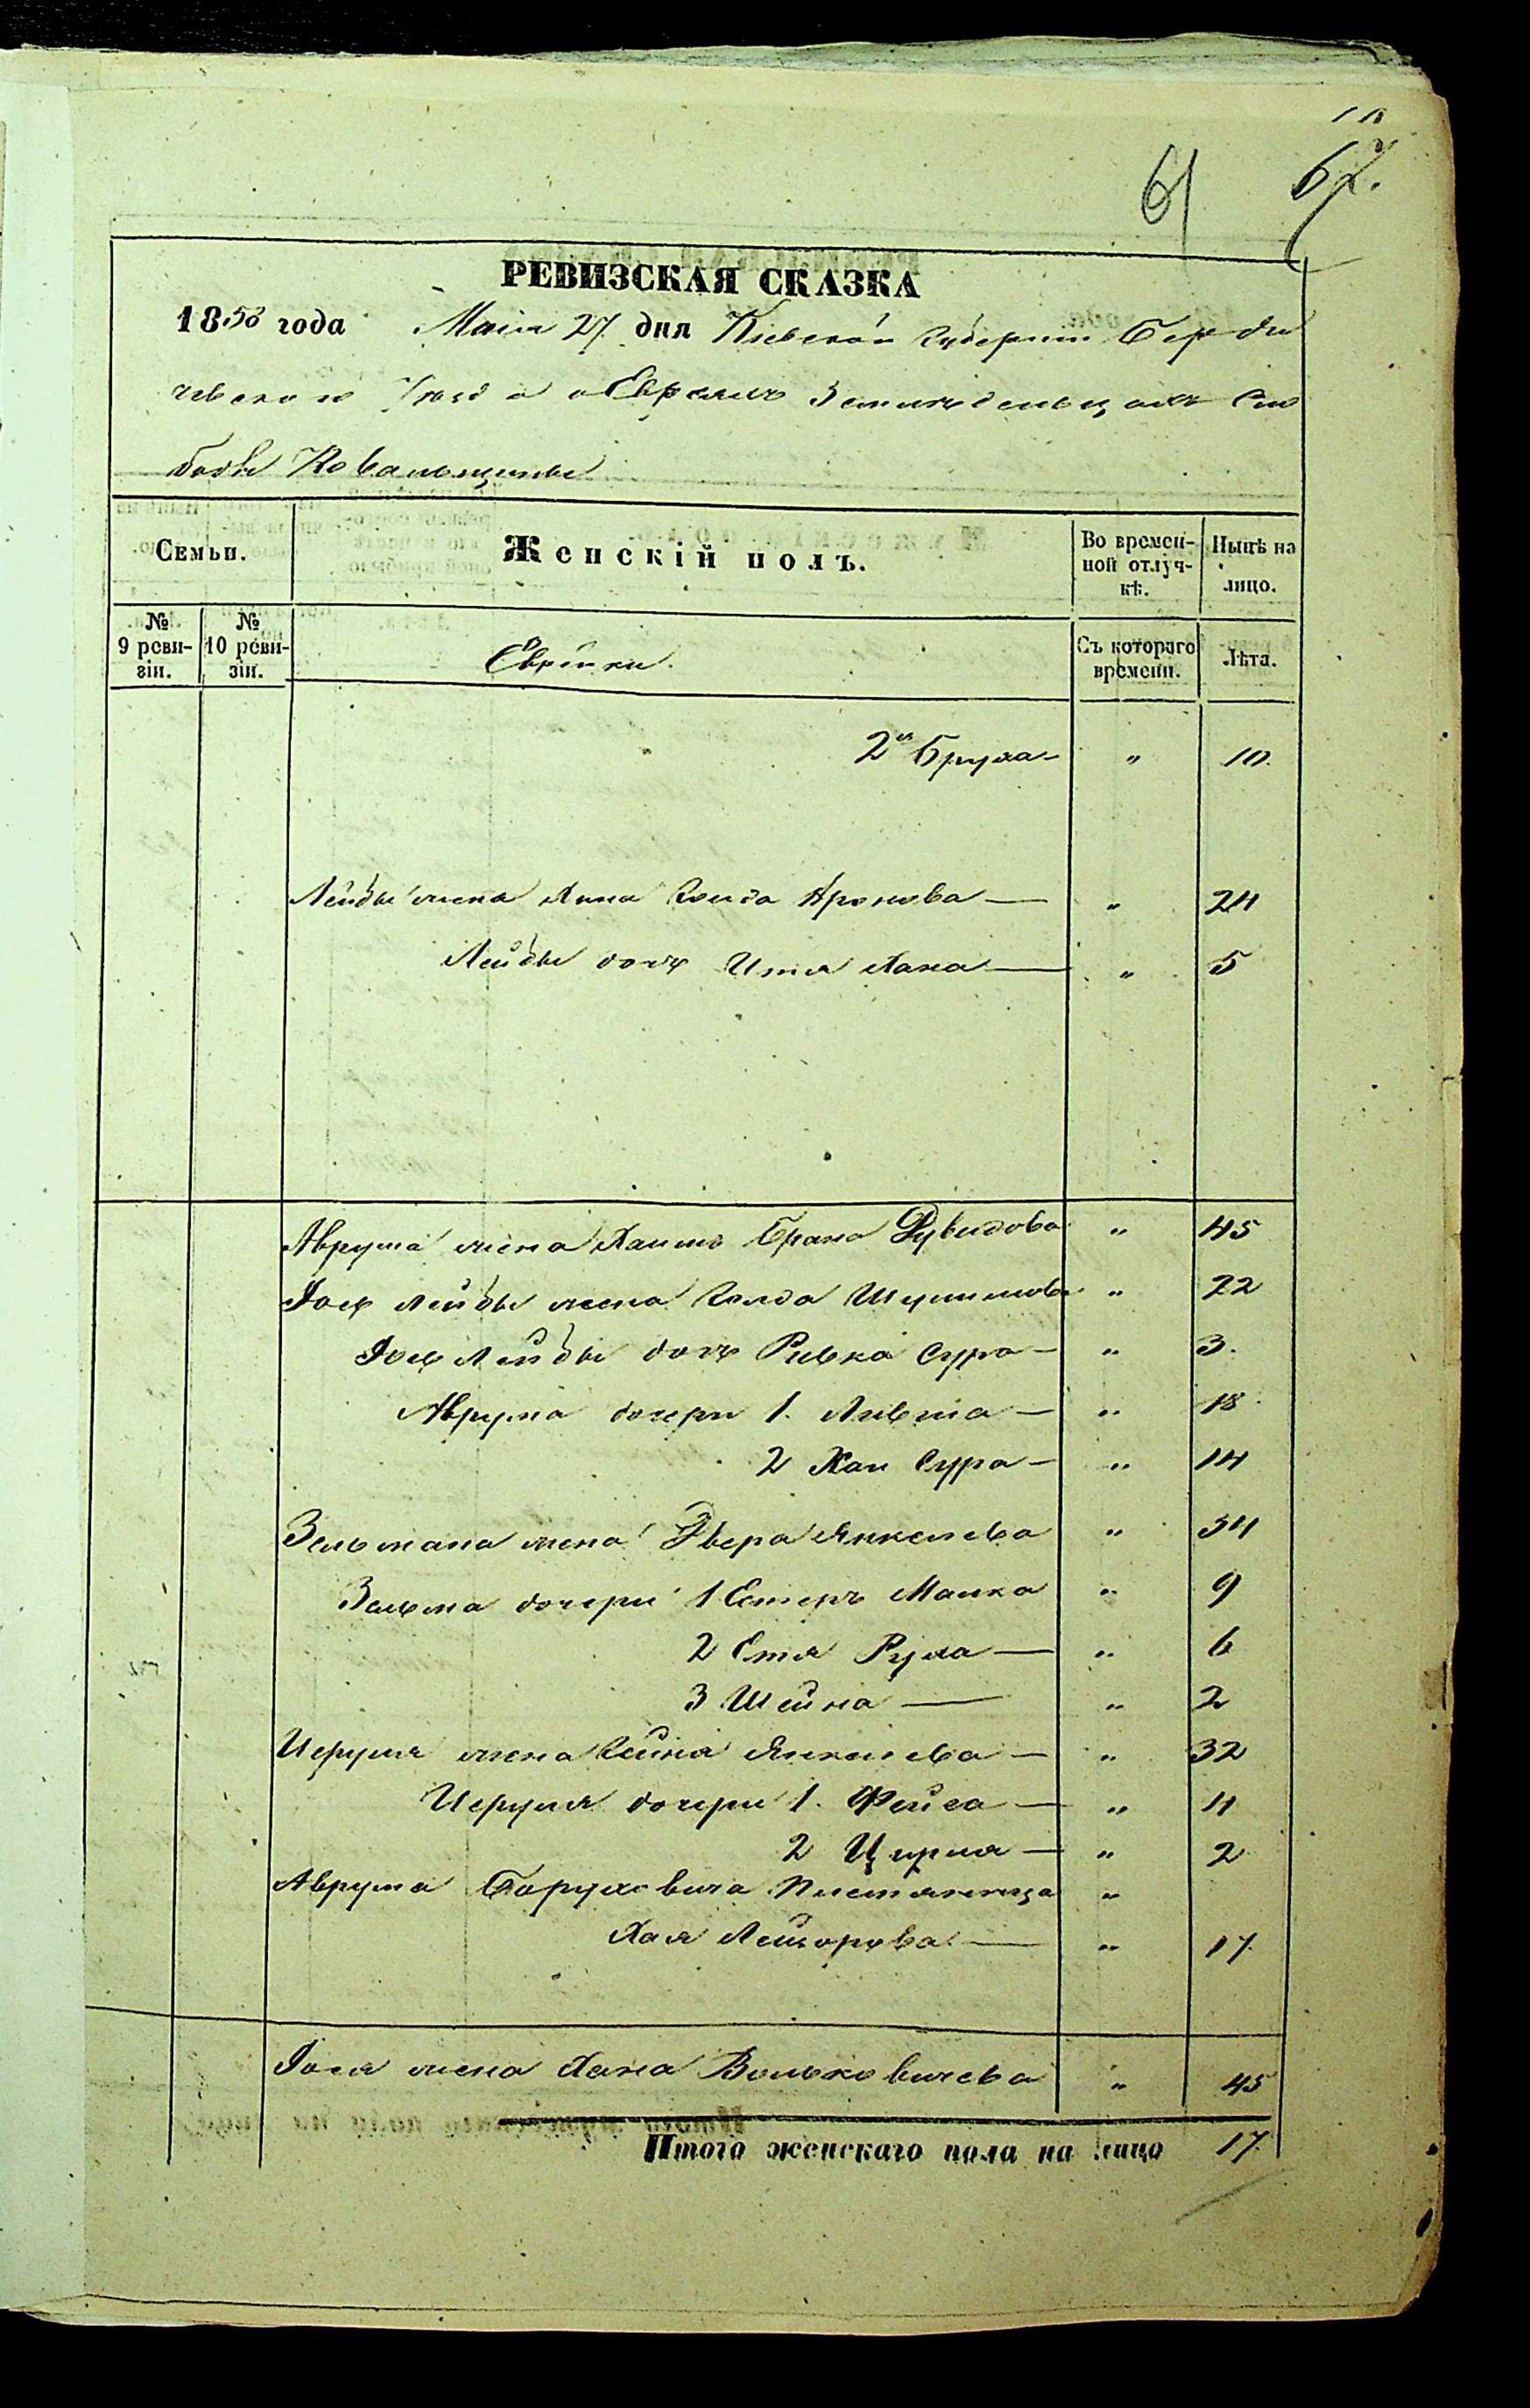 61 62.
РЕВИЗСКАЯ СКАЗКА
1858 года Маія 27 дня Кіевской Губерніи Берди
чевского Уезда о Евреяхъ Земледельцахъ Сло
боды Ковальщины
Семьи. Женскій полъ. Во времен-ной отлуч-кѣ. Нынѣ на лицо.
№ 9 реви-зіи. № 10 реви-зіи. Еврейки. Съ котораго времени. Лѣта.
2я Бруха - " 10.
Лейбы жена Хина Голда Аронова — " 24
Лейбы дочь Итя Хана — " 5
Аврума жена Брана Дувидова " 45
Іось Лейбы жена Голда " 22
Іось Лейбы дочь Ривка Сура - " 3.
Аврума дочери 1. — " 18
2 Хаи Сура - " 14
Зельмана жена Двера Янкелева " 34
Зельма дочери 1 Естеръ Малка " 9
2 Етя Руха — " 6
3 Шейна — " 2
жена Янкелева — " 32
дочери 1. Фейга — " 4
2 Цирля — " 2
Аврума Боруховича "
Хая Лейзорова — " 17
жена Хана Вольковичева " 45
Итого женскаго пола на лицо 17